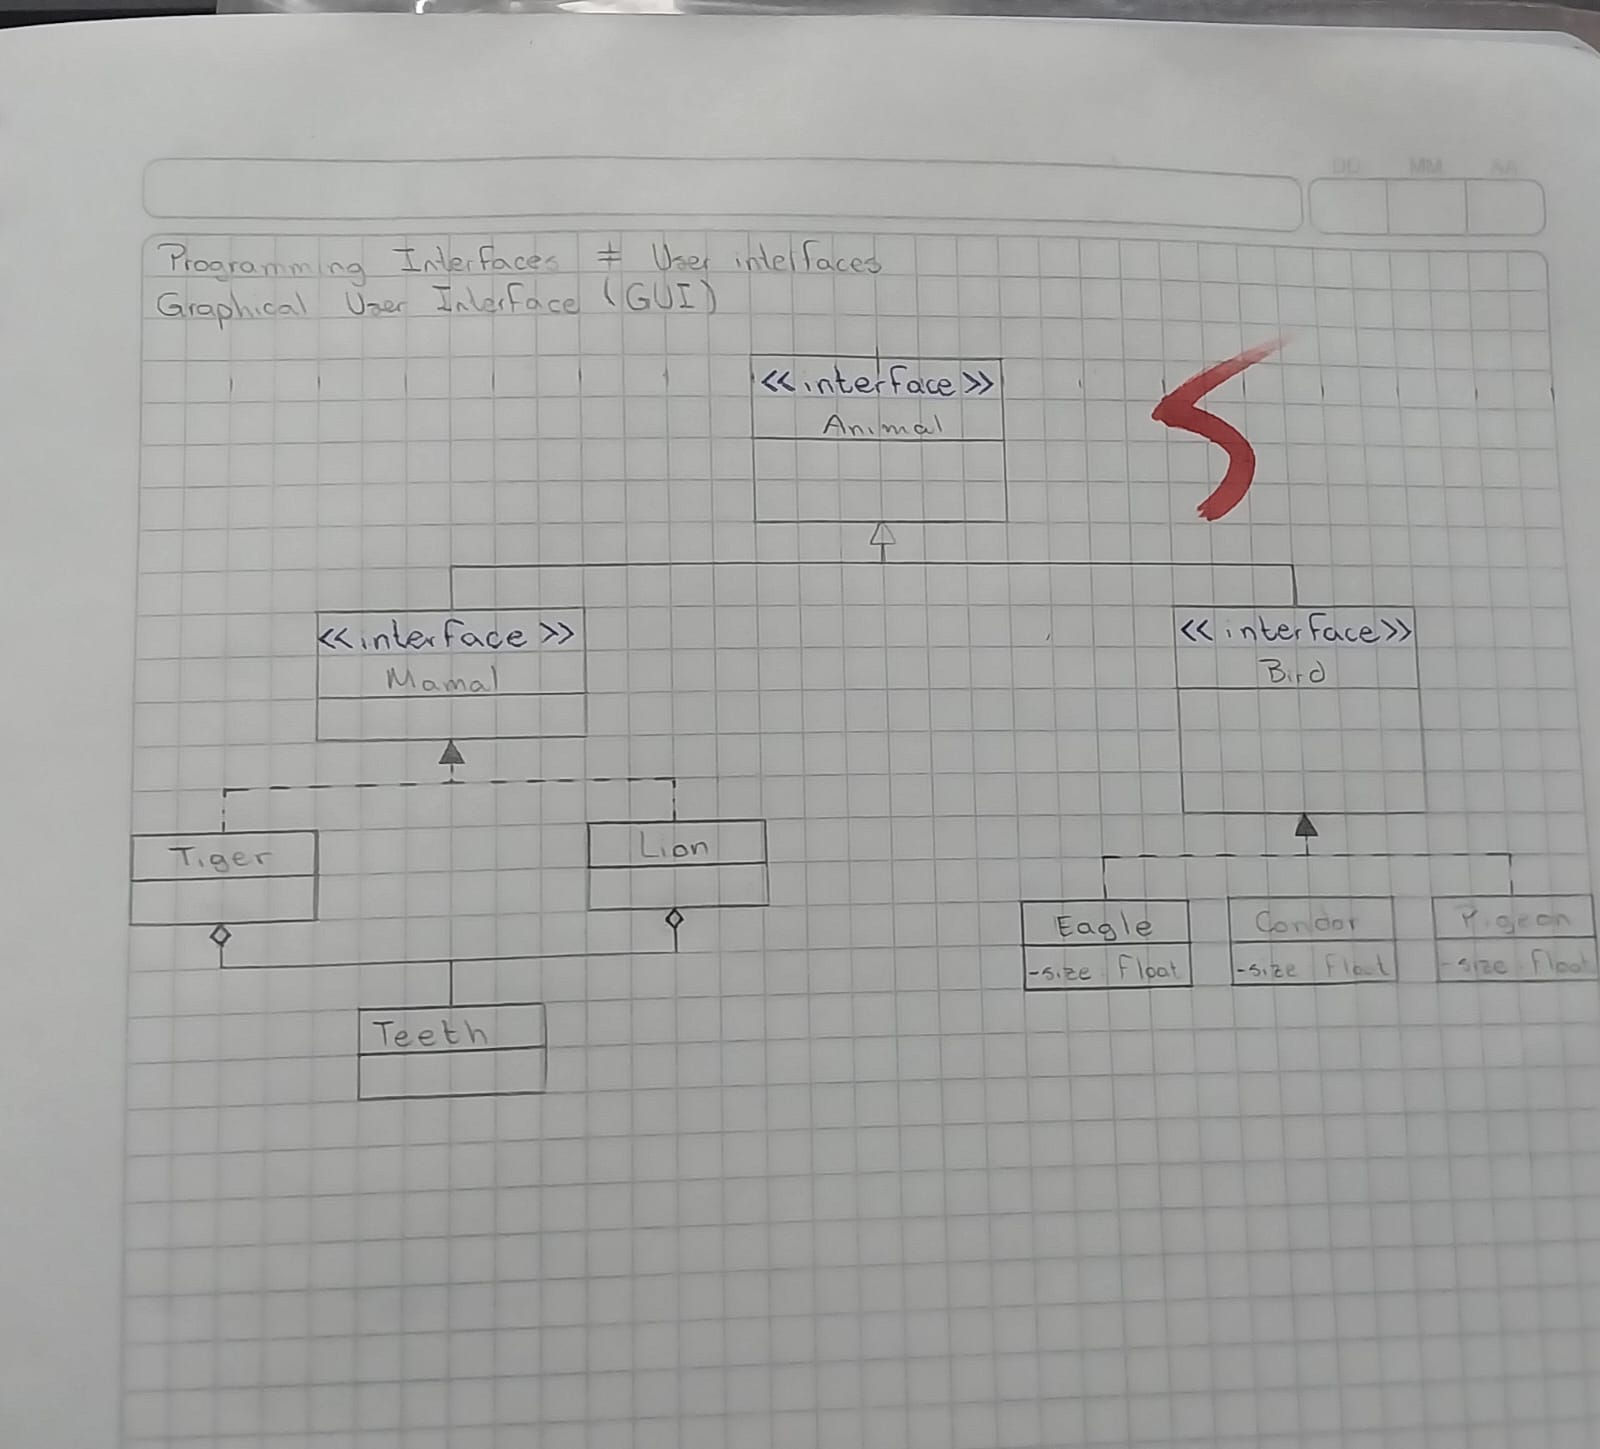 DD MM AA
Programming Interfaces ≠ User interfaces
Graphical User Interface (GUI)
<<interface>>
Animal
S
<<interface>>
Mamal
<<interface>>
Bird
Tiger
Lion
Eagle
-size Float
Condor
-size Float
Pigeon
-size Float
Teeth